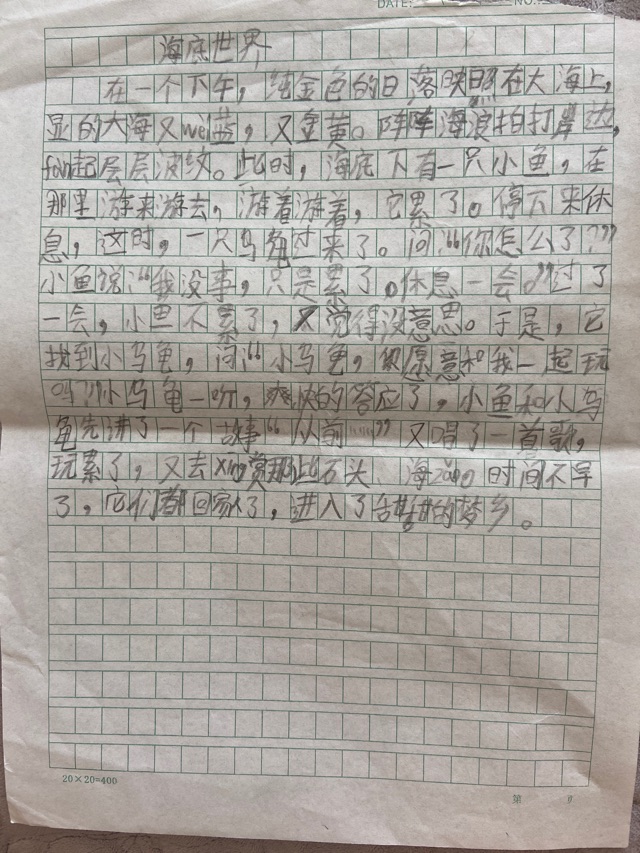 DATE: NO.
海底世界
在一个下午，纯金色的日落映照在大海上，
显的大海又wei蓝，又金黄。阵阵海浪拍打岸边，
fan起层层波纹。此时，海底下有一只小鱼，在
那里游来游去，游着游着，它累了。停下来休
息，这时，一只乌龟过来了。问：“你怎么了？”
小鱼说：“我没事，只是累了。休息一会。”过了
一会，小鱼不累了，又觉得没意思。于是，它
找到小乌龟，问：“小乌龟，愿意和我一起玩
吗？”小乌龟一听，爽快的答应了，小鱼和小乌
龟先讲了一个故事“从前……”又唱了一首歌，
玩累了，又去xing赏那些石头、海zǎo。时间不早
了，它们都回家了，进入了甜甜的梦乡。
20×20=400
第 页